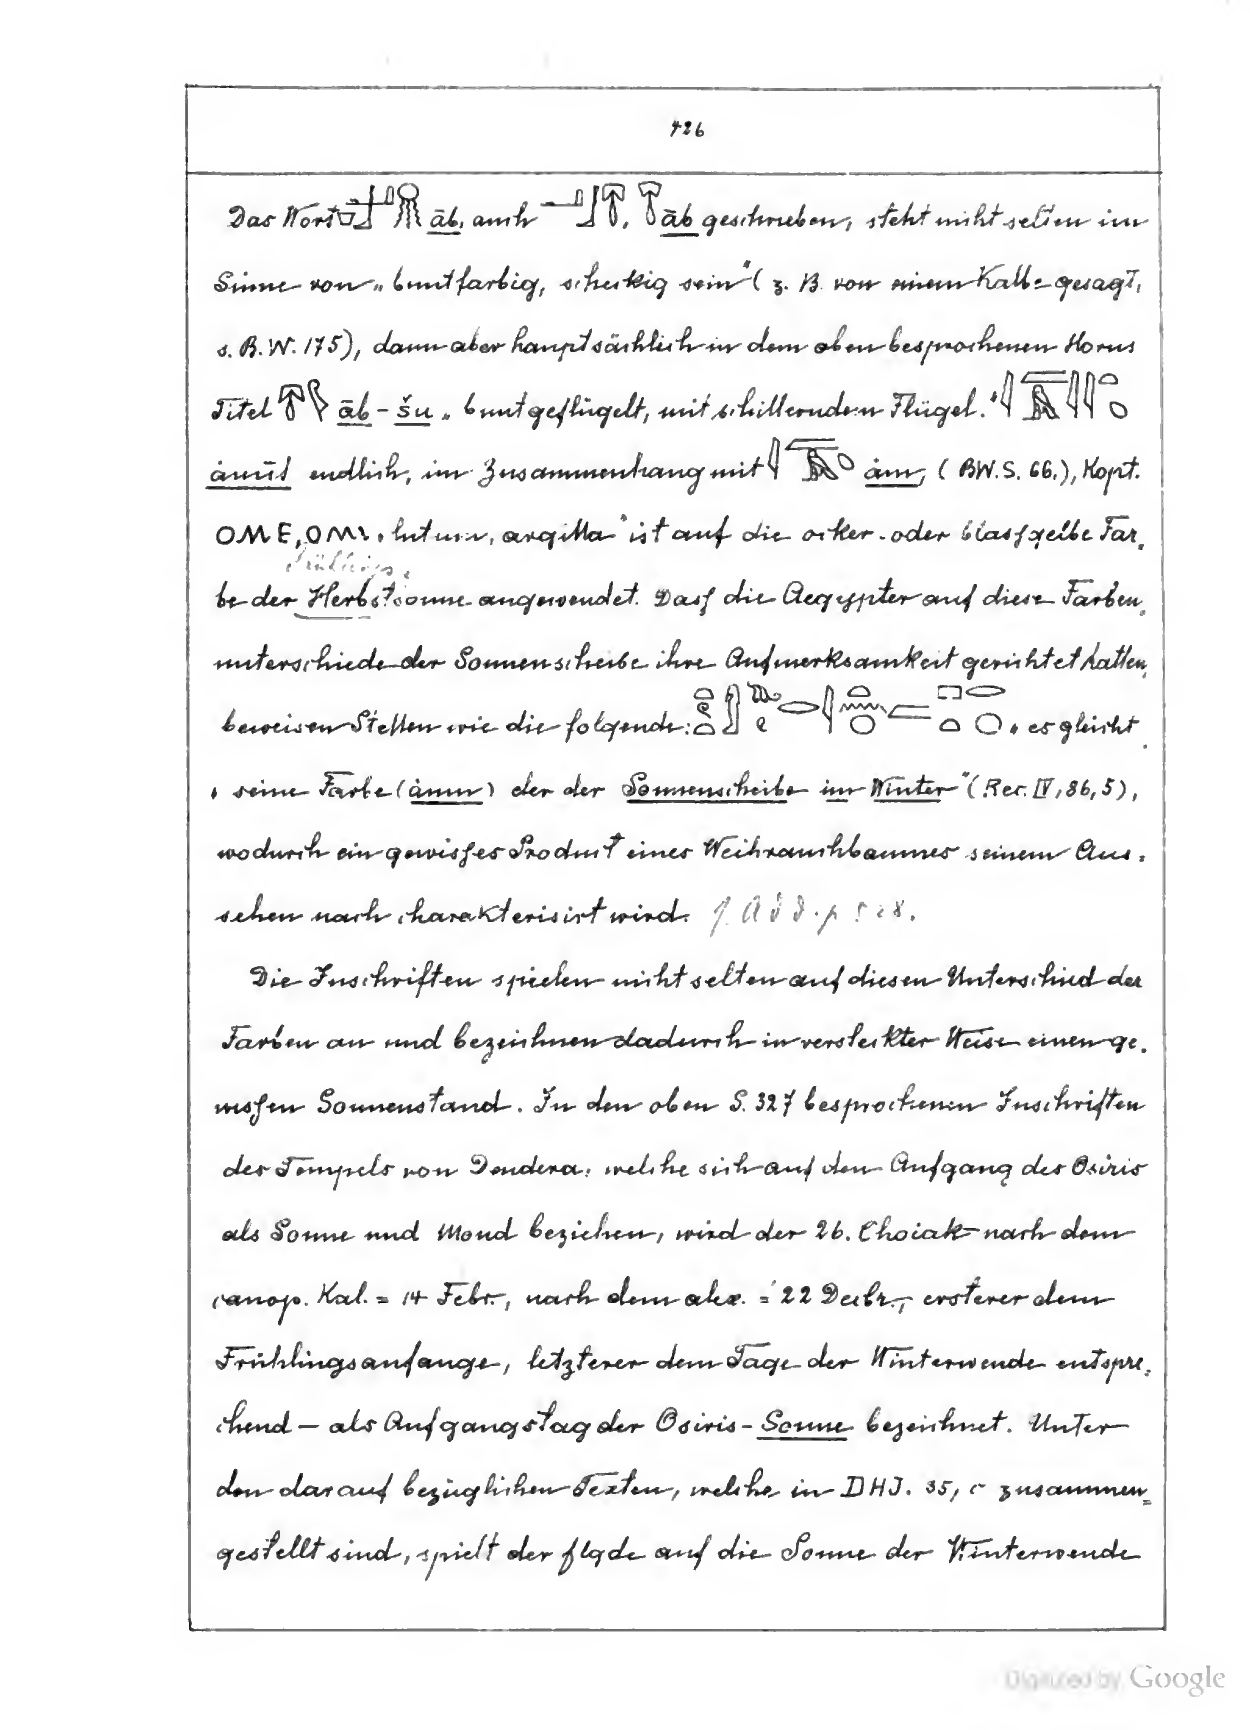 426
Das Wort āb, auch , āb geschrieben, steht nicht selten im
Sinne von „buntfarbig, scheckig sein“ (z. B. von einem Kalbe gesagt,
s. B.W. 175), dann aber hauptsächlich in dem oben besprochenen Horus
Titel āb-šu „buntgeflügelt, mit schillerndem Flügel.“
ȧmīt endlich, im Zusammenhang mit ȧm, (BW. S. 66.), Kopt.
ΟΜΕ, ΟΜΙ „lutum, argilla“ ist auf die ocker- oder blassgelbe Far-
Frühlings-
be der Herbstsonne angewendet. Dass die Aegypter auf diese Farben-
unterschiede der Sonnenscheibe ihre Aufmerksamkeit gerichtet hatten,
beweisen Stellen wie die folgende: „es gleicht
„seine Farbe (ȧmu) der der Sonnenscheibe im Winter“ (Rec. IV, 86, 5),
wodurch ein gewisses Product eines Weihrauchbaumes seinem Aus-
sehen nach charakterisirt wird.
Die Inschriften spielen nicht selten auf diesen Unterschied der
Farben an und bezeichnen dadurch in versteckter Weise einen ge-
wissen Sonnenstand. In den oben S. 327 besprochenen Inschriften
des Tempels von Dendera, welche sich auf den Aufgang des Osiris
als Sonne und Mond beziehen, wird der 26. Choiak – nach dem
canop. Kal. = 14 Febr., nach dem alex. = 22 Decbr., ersterer dem
Frühlingsanfange, letzterer dem Tage der Winterwende entspre-
chend – als Aufgangstag der Osiris-Sonne bezeichnet. Unter
den darauf bezüglichen Texten, welche in DHI. 35, c zusammen-
gestellt sind, spielt der flgde auf die Sonne der Winterwende
Digitized by Google